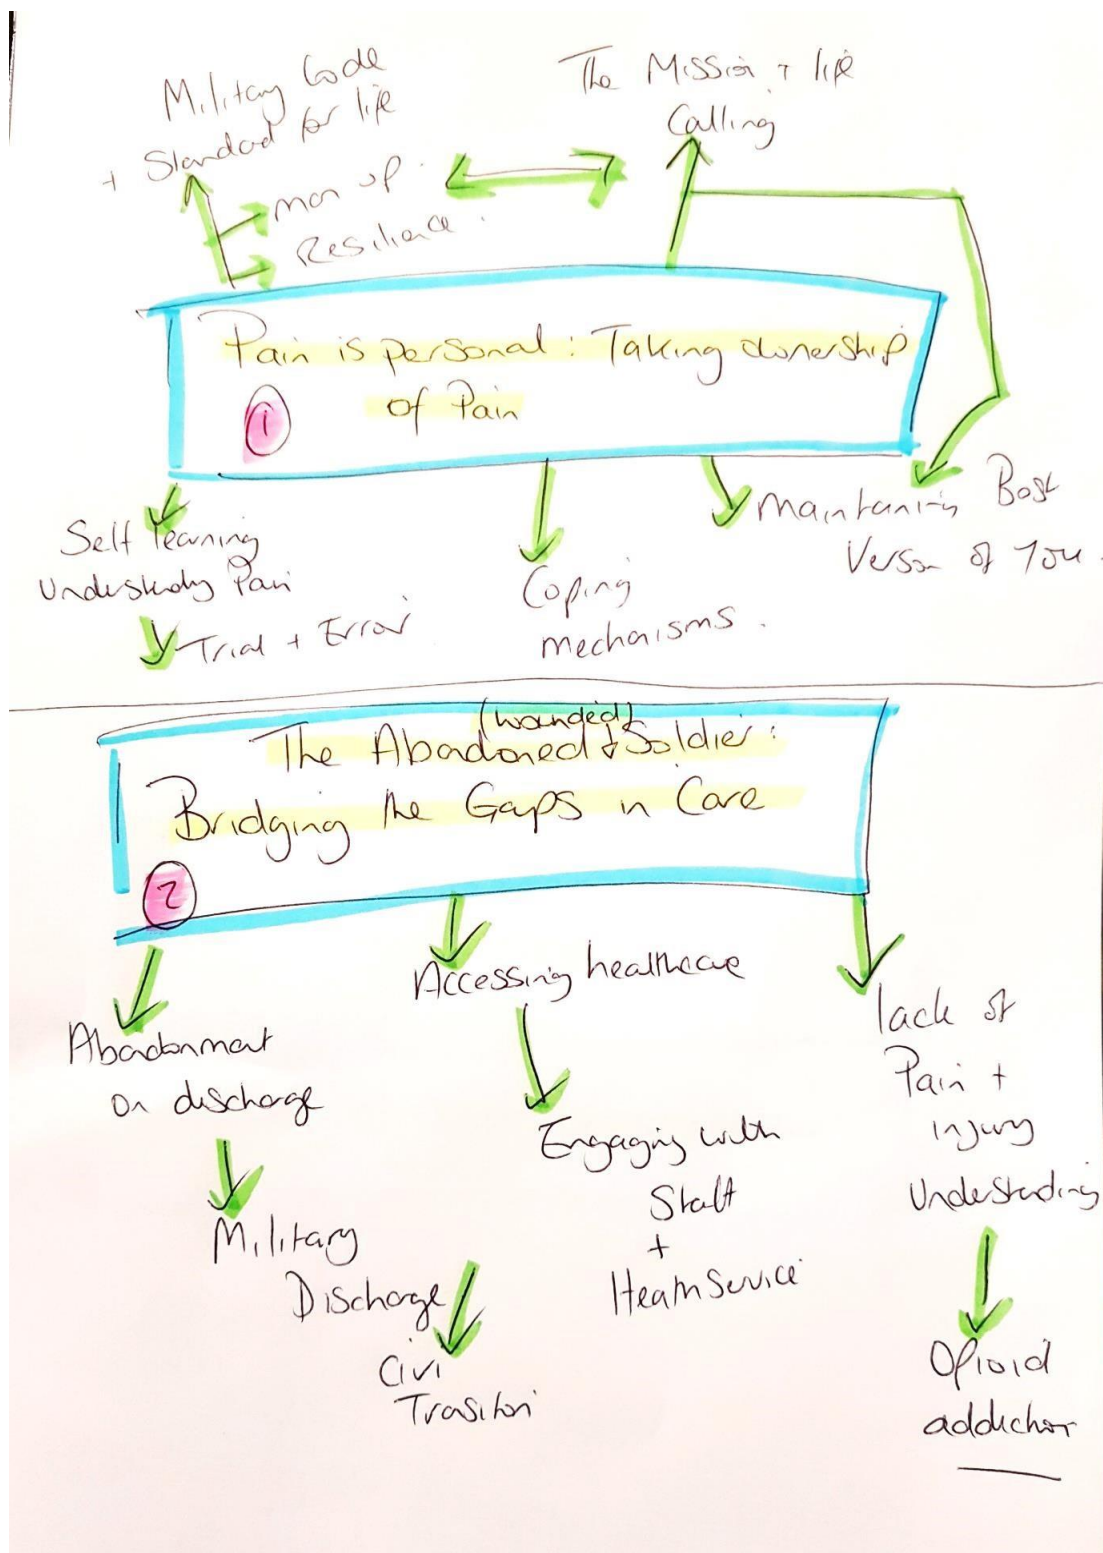 Military Code
+ Standard for life
man up.
Resilience.
The Mission + life
Calling
Pain is personal: Taking ownership
of Pain
1
Self learning
Understanding Pain
Trial + Error
Coping
mechanisms.
Maintaining Best
Version of You.
(wounded)
The Abandoned Soldier:
Bridging the Gaps in Care
2
Abandonment
on discharge
Military
Discharge
Civi
Trasition
Accessing healthcare
Engaging with
Staff
+
Health Service
lack of
Pain +
injury
Understanding
Opioid
addiction